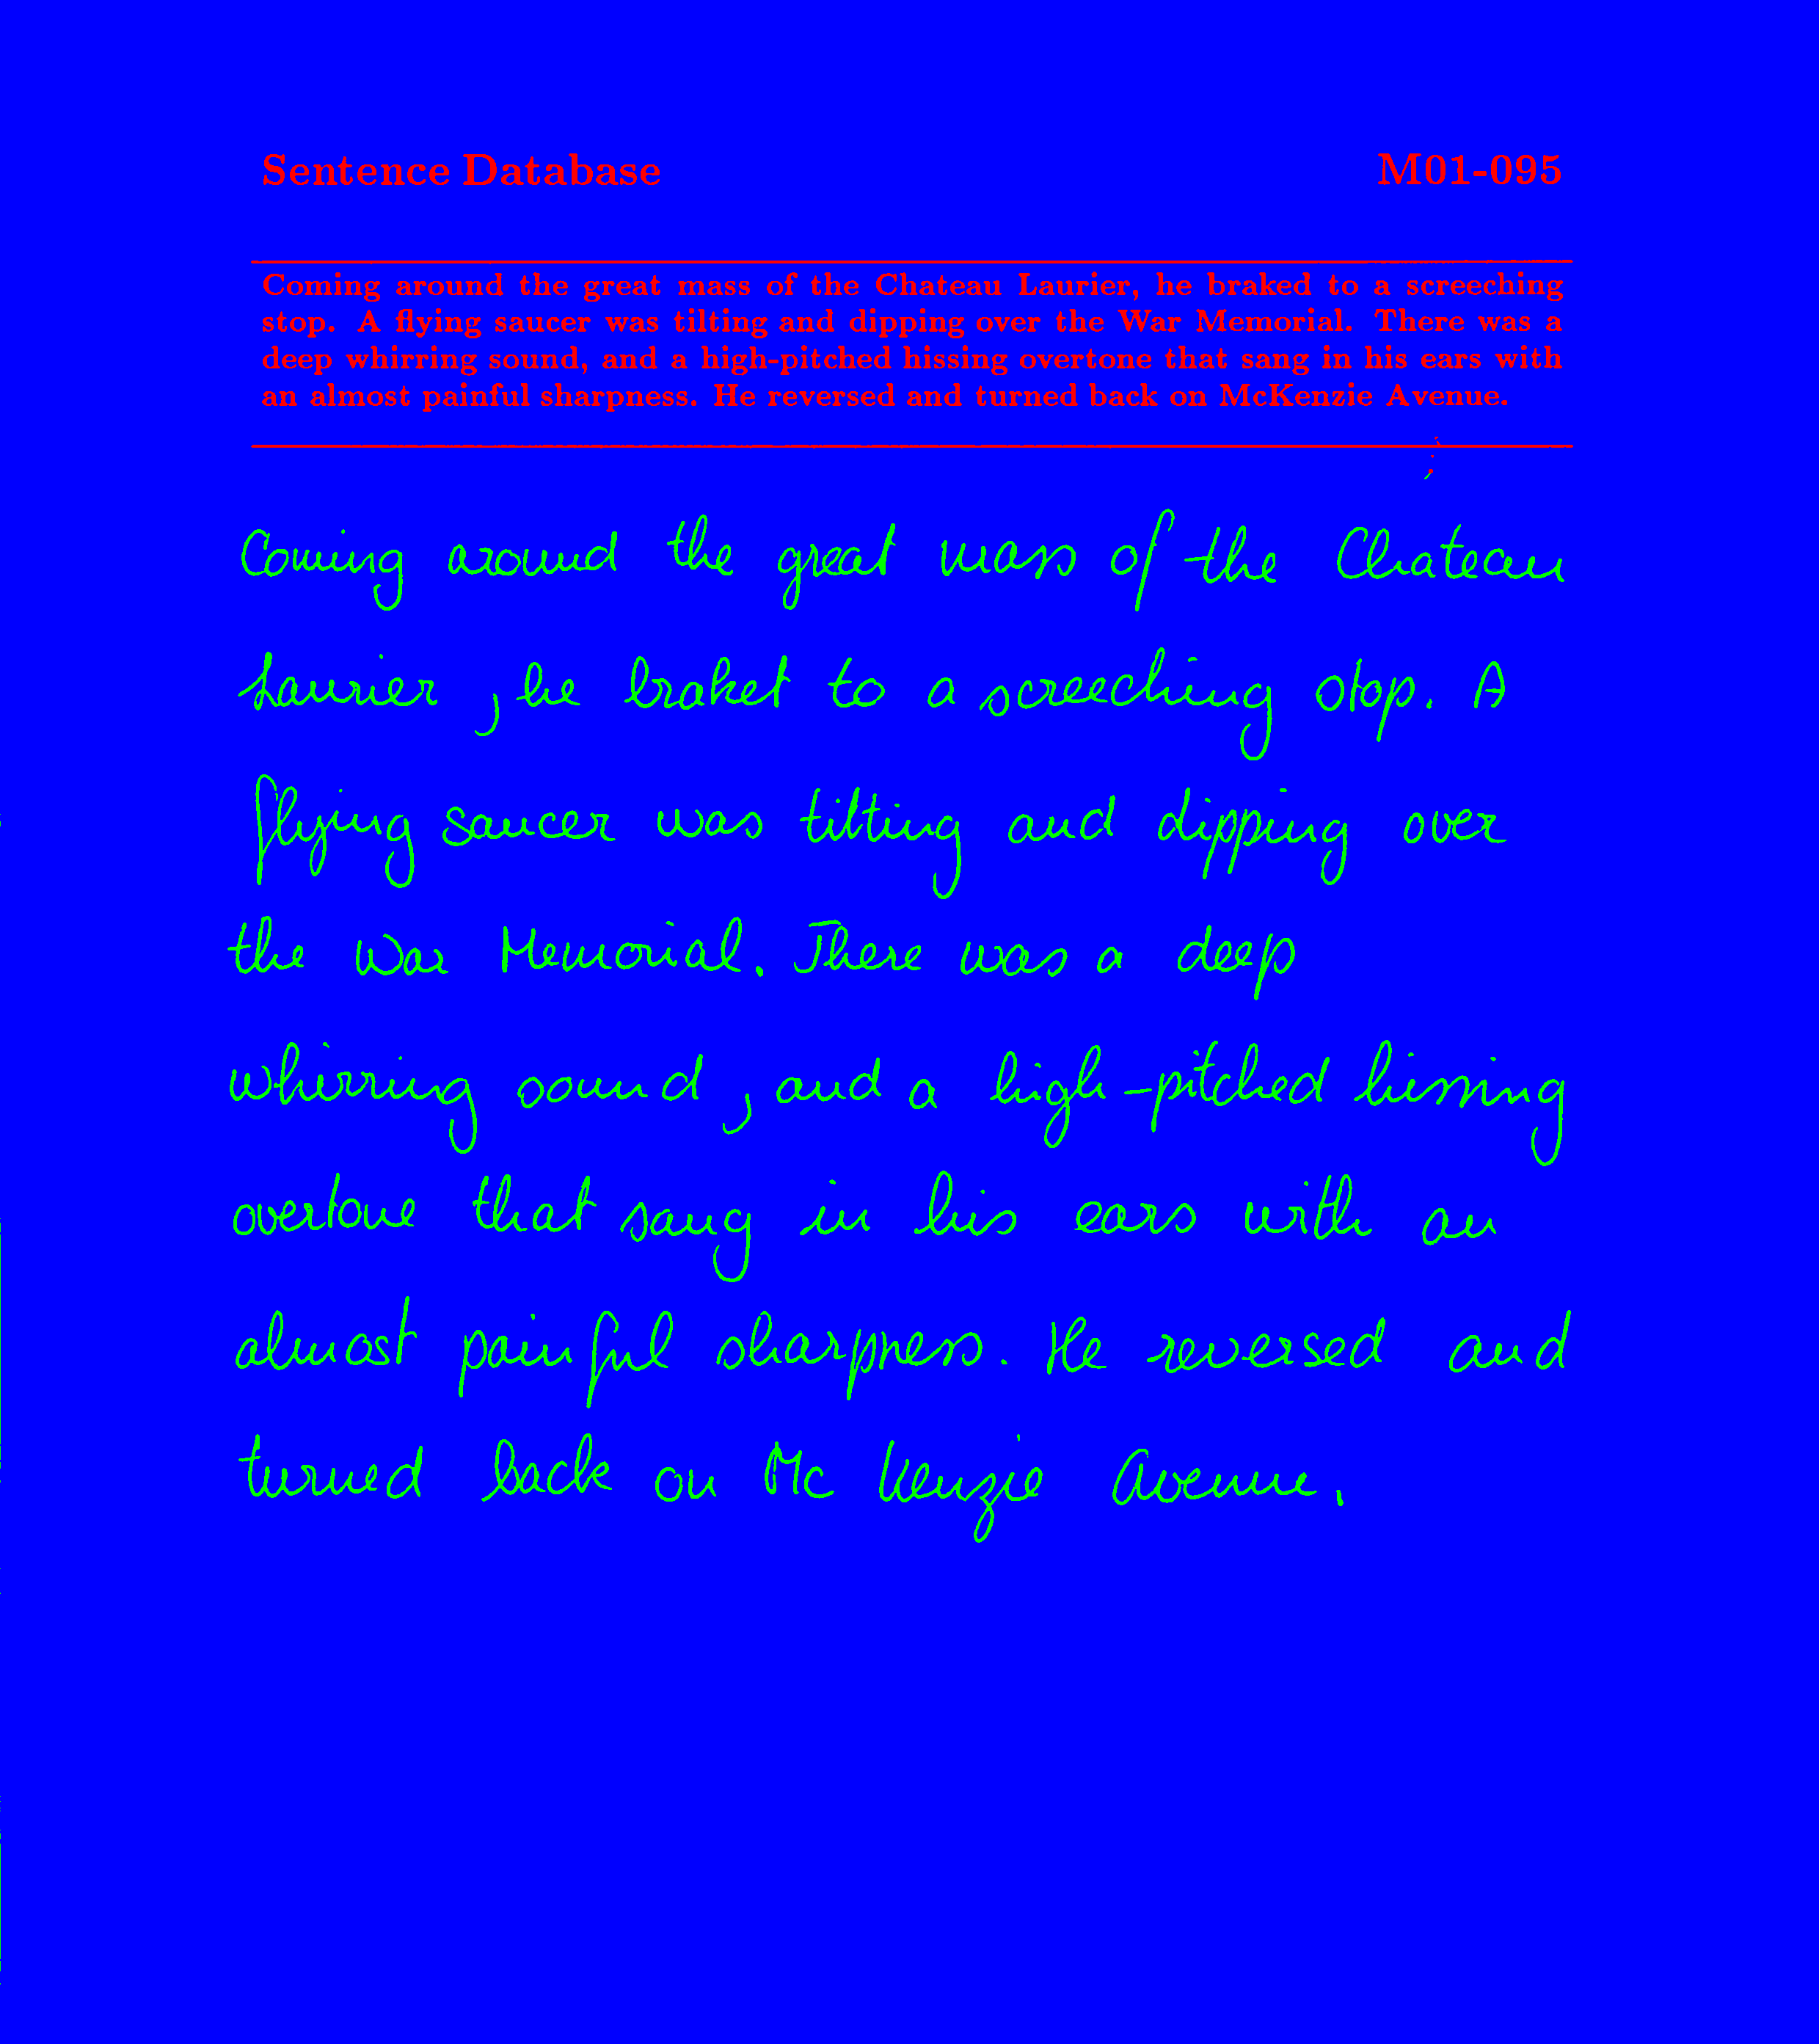 Sentence Database M01-095
Coming around the great mass of the Chateau Laurier, he braked to a screeching
stop. A flying saucer was tilting and dipping over the War Memorial. There was a
deep whirring sound, and a high-pitched hissing overtone that sang in his ears with
an almost painful sharpness. He reversed and turned back on McKenzie Avenue.
Coming around the great mass of the Chateau
Laurier, he braket to a screeching stop. A
flying saucer was tilting and dipping over
the War Memorial. There was a deep
whirring sound, and a high-pitched hissing
overtone that sang in his ears with an
almost painful sharpness. He reversed and
turned back on Mc Kenzie Avenue.